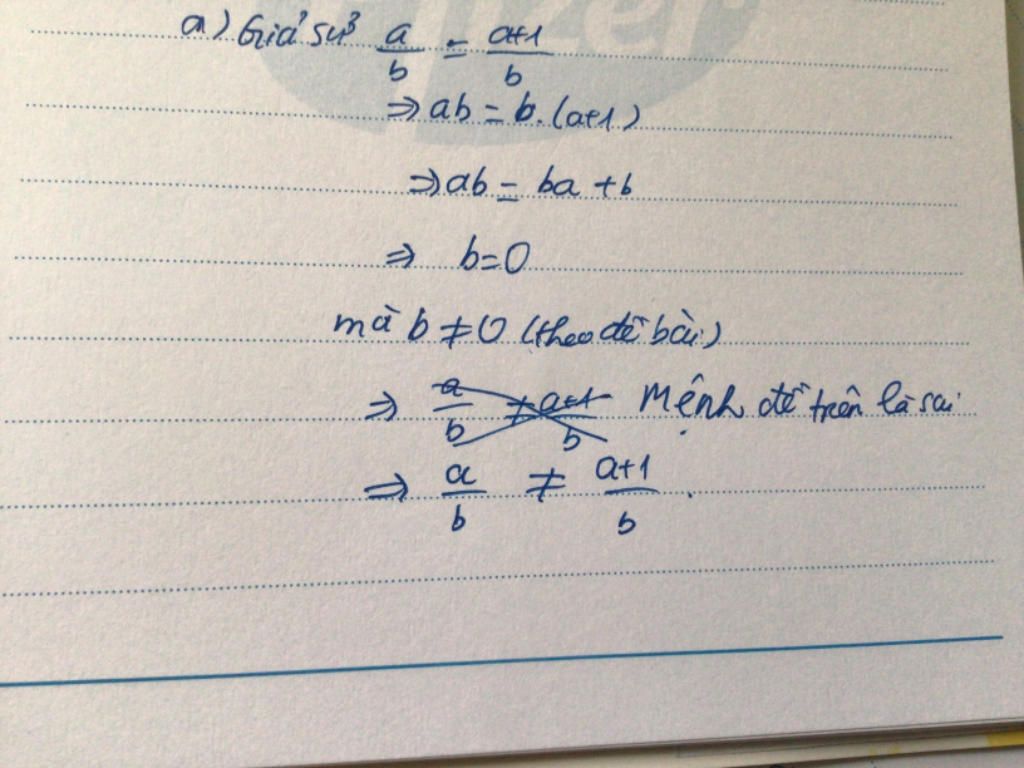 a) Giả sử a/b = a+1/b
⇒ ab = b.(a+1)
⇒ ab = ba + b
⇒ b=0
mà b ≠ 0 (theo đề bài)
⇒ a/b ≠ a+1/b Mệnh đề trên là sai
⇒ a/b ≠ a+1/b .